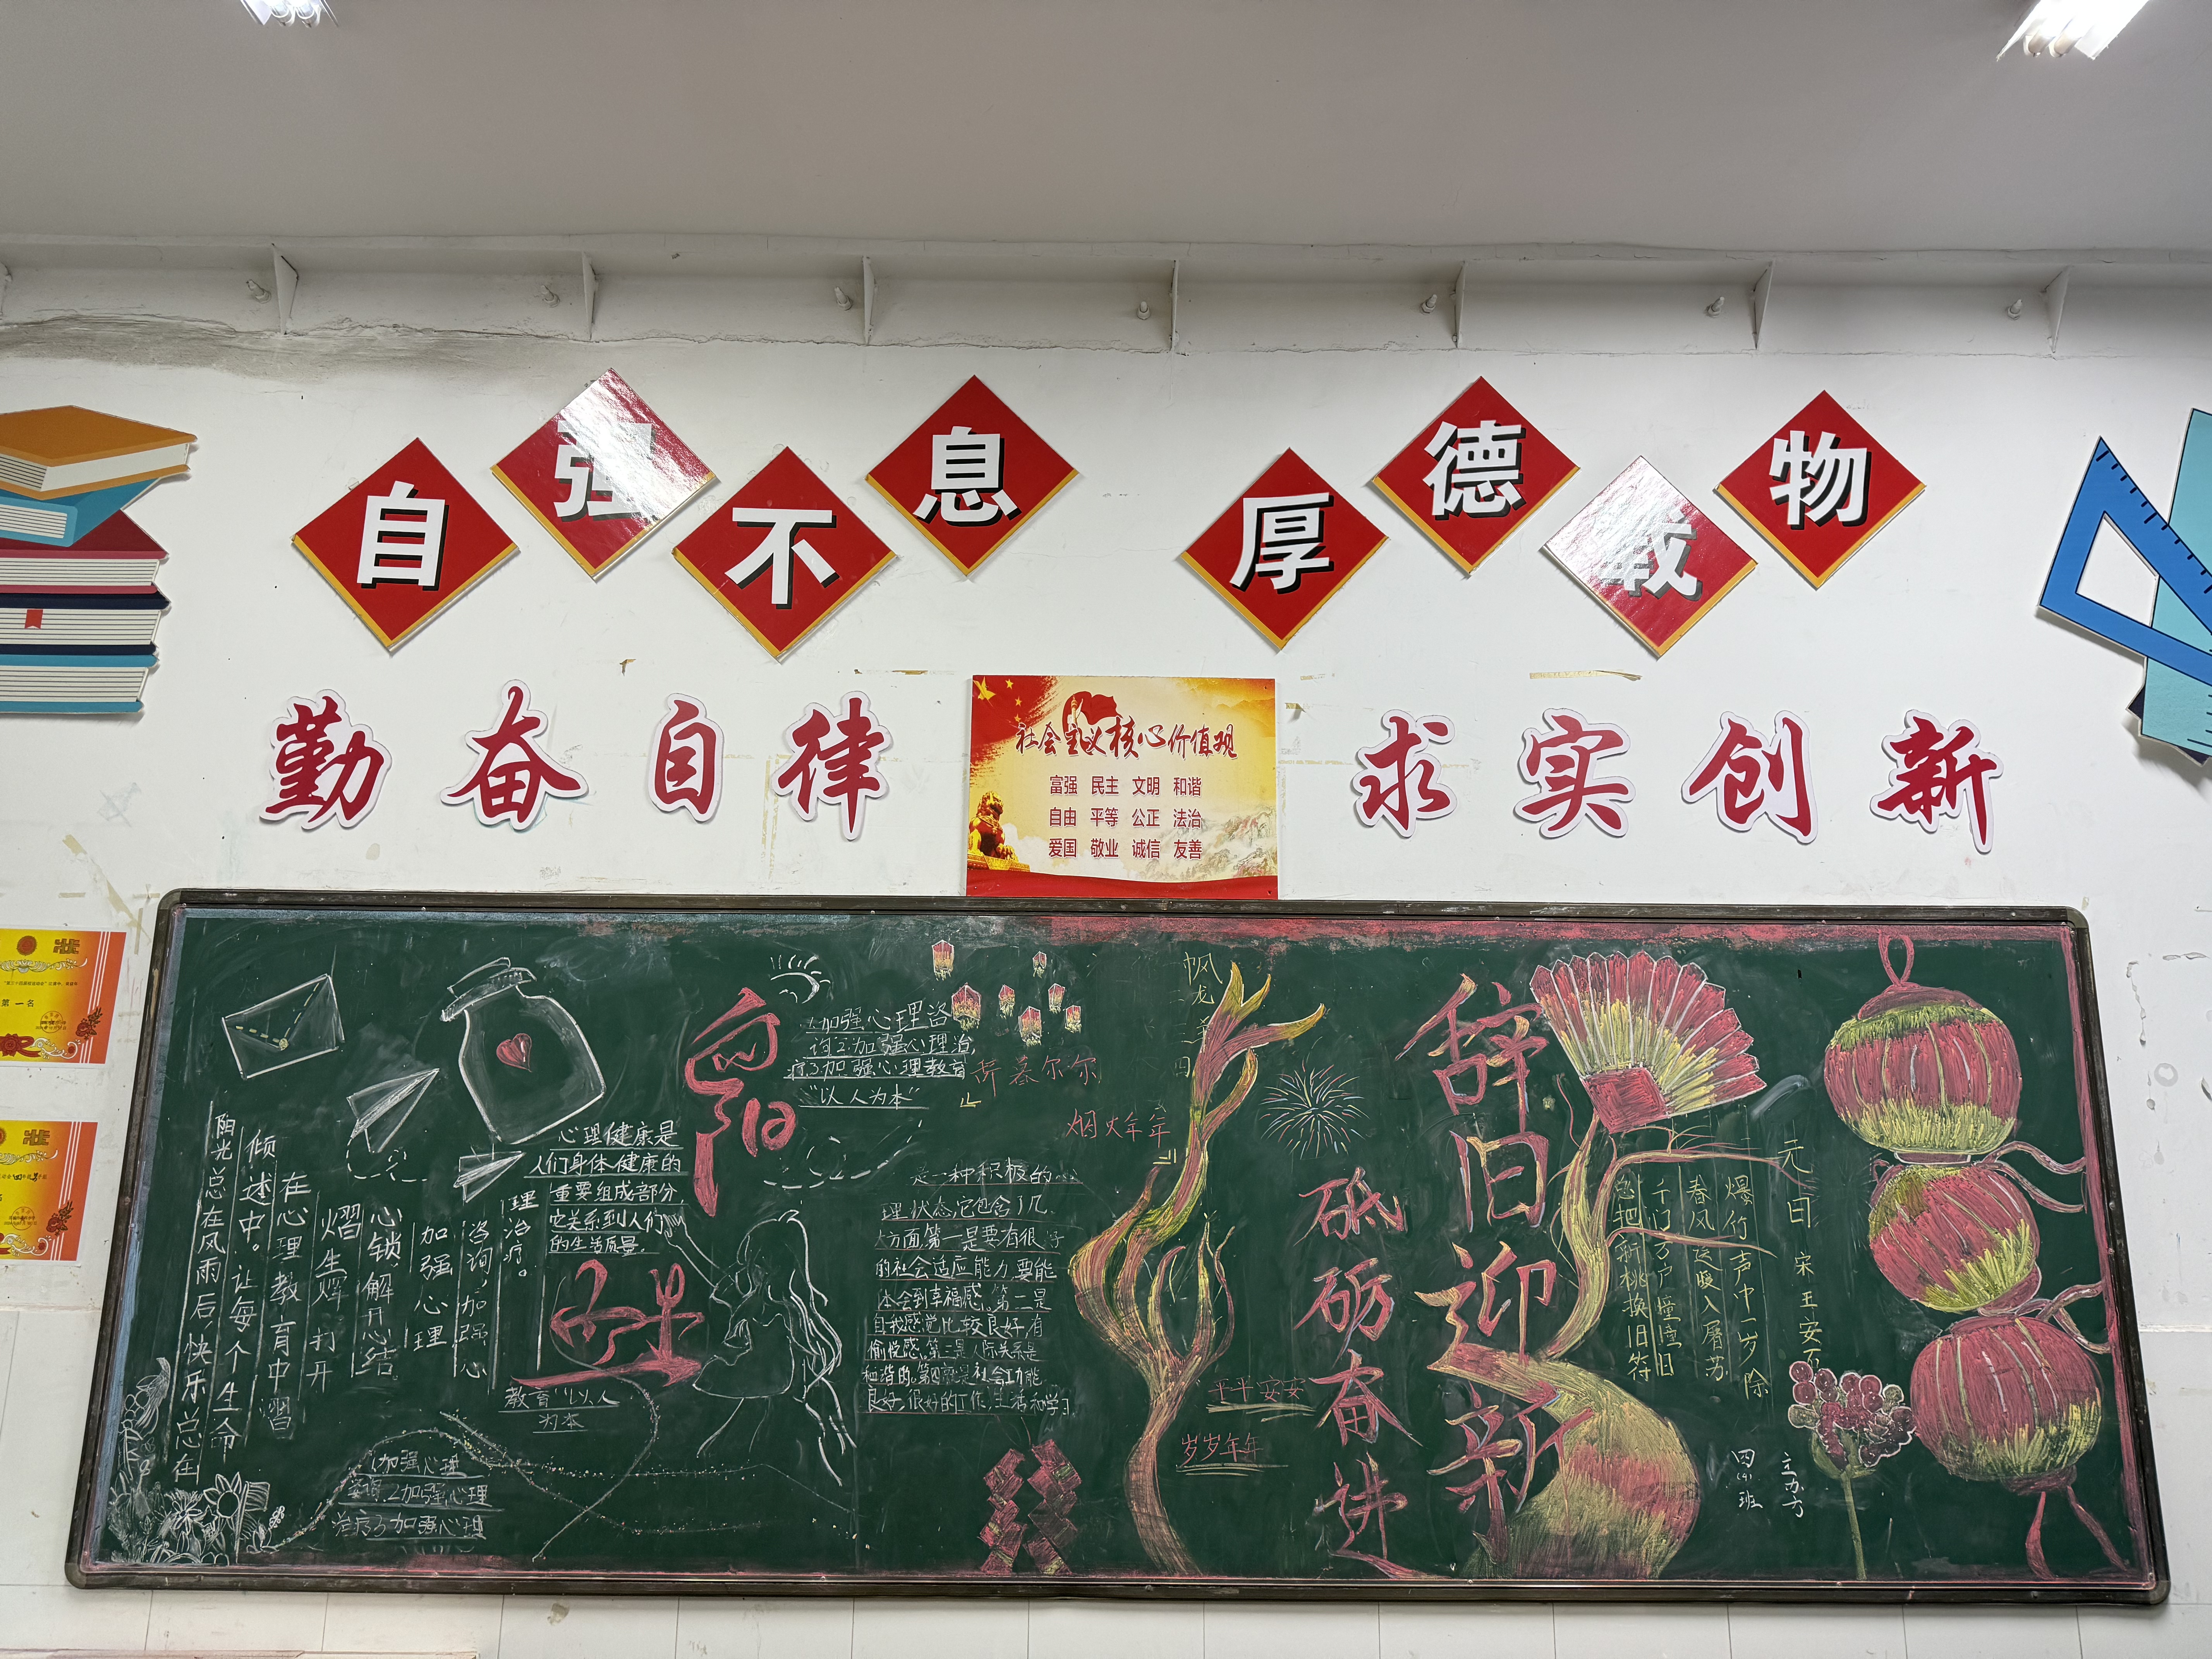 自强不息
厚德载物
勤奋自律
求实创新
社会主义核心价值观
富强 民主 文明 和谐
自由 平等 公正 法治
爱国 敬业 诚信 友善
第一名
阳光总在风雨后,快乐总在
倾述中。让每个生命
在心理教育中熠
熠生辉 打开
心锁,解开心结。
加强心理
咨询,加强心
理治疗。
教育“以人
为本
心理健康是
人们身体健康的
重要组成部分,
它关系到人们
的生活质量。
1.加强心理咨
询2.加强心理治
疗3加强心理教育
“以人为本”
1加强心理
2加强心理
治疗3加强心理
是一种积极的
理状态,它包含了几
大方面,第一是要有很好
的社会适应能力,要能
体会到幸福感。第二是
自我感觉比较良好,有
愉悦感。第三是人际关系是
和谐的。第四就是社会功能
良好,很好的工作,生活和学习
烟火年年
平平安安
岁岁年年
砥砺奋进
辞旧迎新
元日 宋 王安石
爆竹声中一岁除
春风送暖入屠苏
千门万户曈曈日
总把新桃换旧符
四(4)班